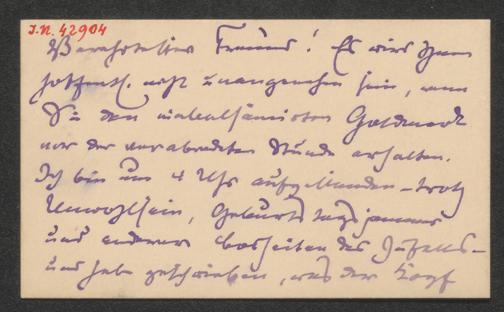 J.N. 42904
Verehrtester Freund! Es wird Ihnen
hoffentl. nicht unangenehm sein, wenn
Sie den Goldmark
vor der verabredeten Stunde erhalten.
Ich bin um 4 Uhr aufgestanden – trotz
Unwohlsein, Geburtstagsjammer
und anderen Bosheiten des Zufalls –
und habe geschrieben, was der Kopf